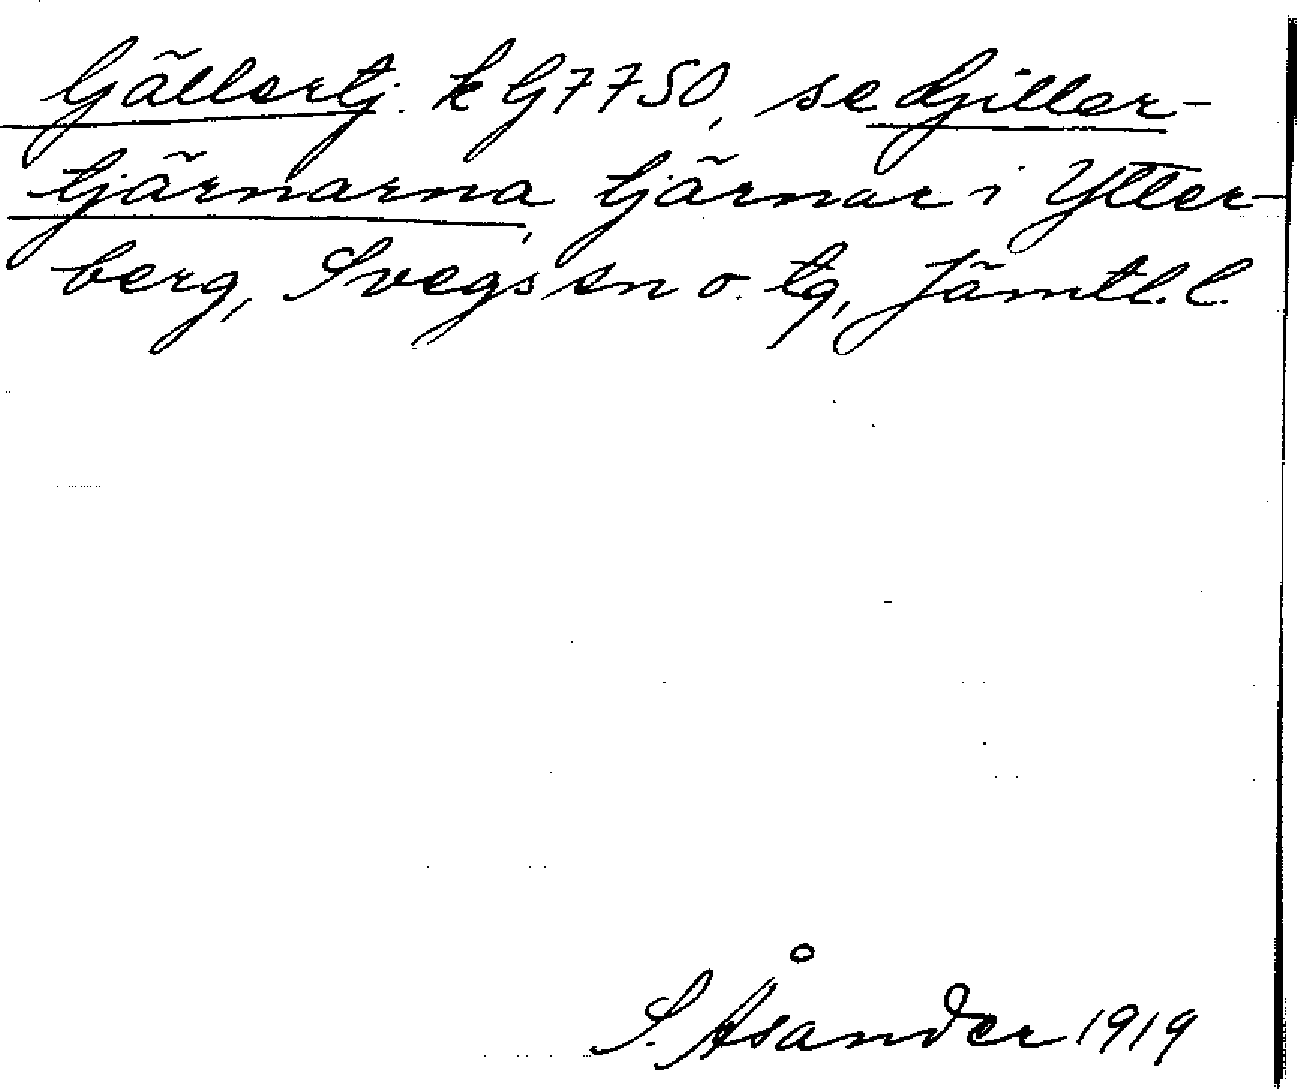 Gällertj. k G7750, se Giller-
tjärnarna, tjärnar i Ytter-
berg, Svegs sn o. tg, Jämtl. l.
S. Åsander 1919